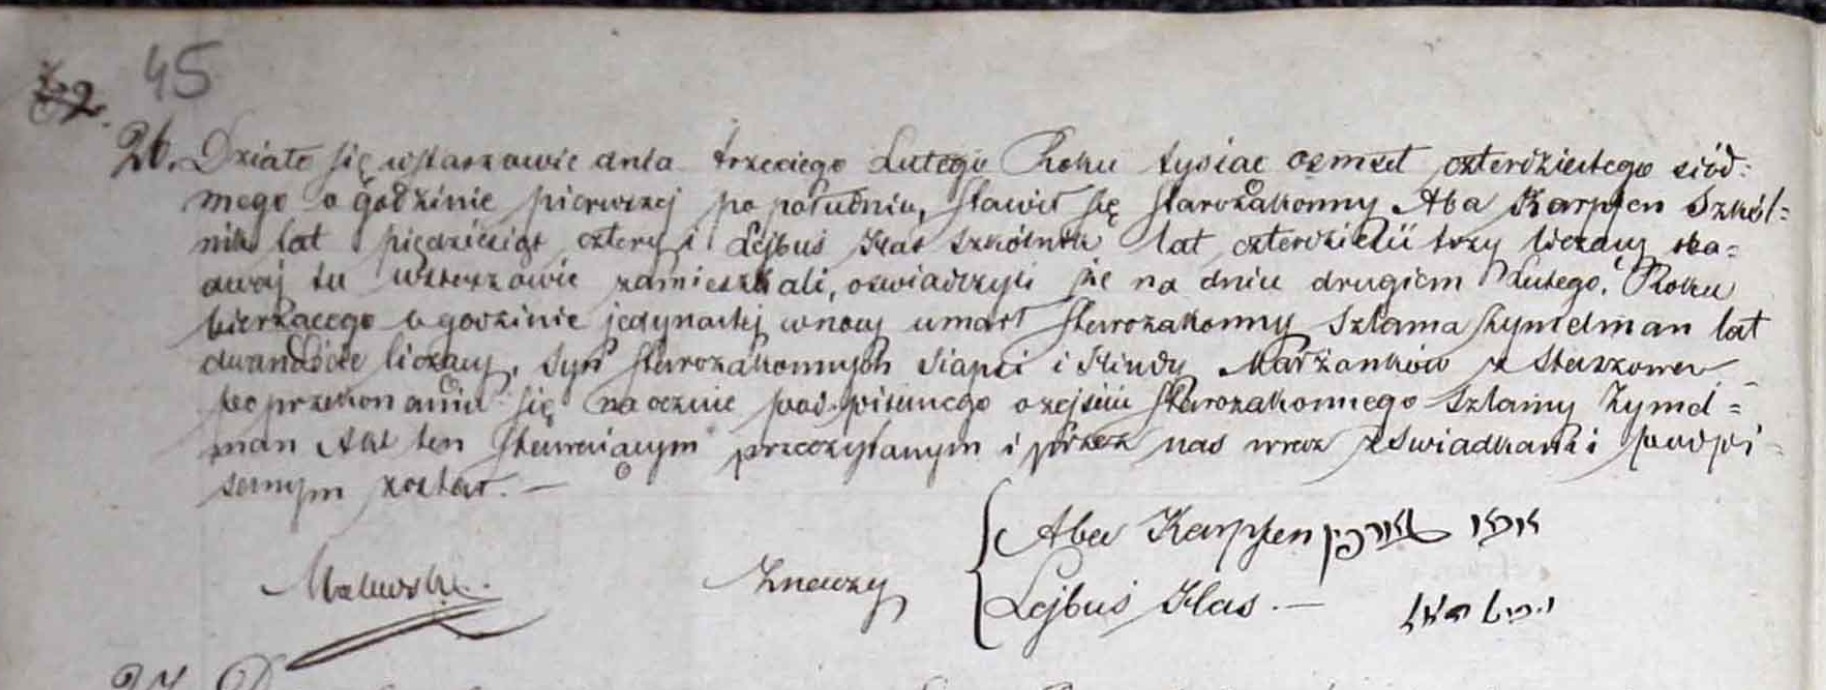 45
26. Działo się wStaszowie dnia trzeciego Lutego Roku tysiac osmset czterdziestego siód-
mego o godzinie pierwszej po południu, stawił się starozakonny Aba Karpfen Szkól=
nik lat pięćdziesiąt cztery i Lejbuś Kłas Szkólnik lat czterdzieści trzy liczący oba=
dwaj tu wStaszowie zamieszkali, oswiadczyli że na dniu drugiem Lutego Roku
bierzącego o godzinie jedynastej wnocy umarł starozakonny Szlama Zymelman lat
dwanaście liczący, syn starozakonnych i Hindy Małżonków z Staszowa
po przekonaniu się naocznie podpisanego o zejściu starozakonnego Szlamy Zymel=
man Akt ten stawaiącym przeczytanym i przez nas wraz zswiadkami podpi-
sanym został. —
Aba Karpfen
Znawzy
Lejbuś Kłas. —